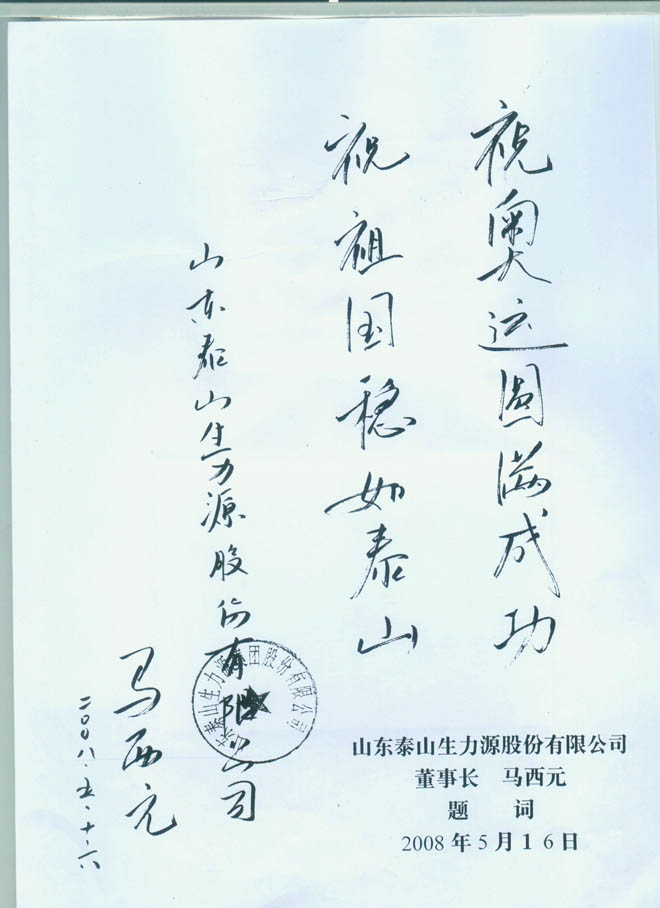 祝奥运圆满成功
祝祖国稳如泰山
山东泰山生力源股份有限公司
马西元
二00八.五.十六
山东泰山生力源集团股份有限公司
山东泰山生力源股份有限公司
董事长 马西元
题 词
2008年5月16日